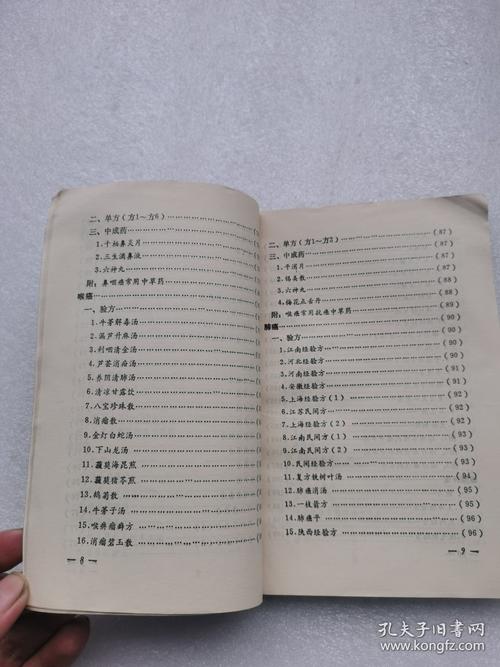 二、单方（方1～方6）
三、中成药
1.千柏鼻炎片
2.三生滴鼻液
3.六神丸
附：鼻咽癌常用中草药
喉癌
一、验方
1.牛蒡解毒汤
2.漏芦升麻汤
3.利咽清金汤
4.芦荟消疮汤
5.养阴清肺汤
6.清凉甘露饮
7.八宝珍珠散
8.消瘤散
9.金灯白蛇汤
10.下山龙汤
11.蘡薁海昆煎
12.蘡薁猪苓煎
13.鸽萄散
14.牛蒡子汤
15.喉痹瘤癣方
16.消瘤碧玉散
— 8 —
二、单方（方1～方2）……（87）
三、中成药……（87）
1.平消片……（87）
2.锡类散……（88）
3.六神丸……（88）
4.梅花点舌丹……（88）
附：喉癌常用抗癌中草药……（89）
肺癌……（90）
一、验方……（90）
1.江南经验方……（90）
2.河北经验方……（90）
3.河南经验方……（91）
4.安徽经验方……（91）
5.上海经验方（1）……（92）
6.江苏民间方……（92）
7.上海经验方（2）……（92）
8.江南民间方（1）……（93）
9.江南民间方（2）……（93）
10.民间经验方……（93）
11.复方铁树叶汤……（94）
12.肺癌消汤……（95）
13.一枝箭方……（95）
14.肺癌平……（96）
15.陕西经验方……（96）
— 9 —
孔夫子旧书网
www.kongfz.com